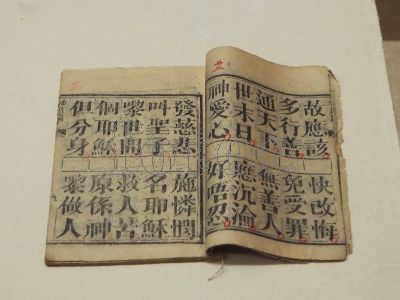 卄三
故應該　快改悔
多行善　免受罪
通天下　無善人
世末日　應沉淪
神愛心　好唔忍
發慈悲　施憐憫
叫聖子　名耶穌
嚟世間　救人苦
個耶穌　原係神
但分身　嚟做人
九